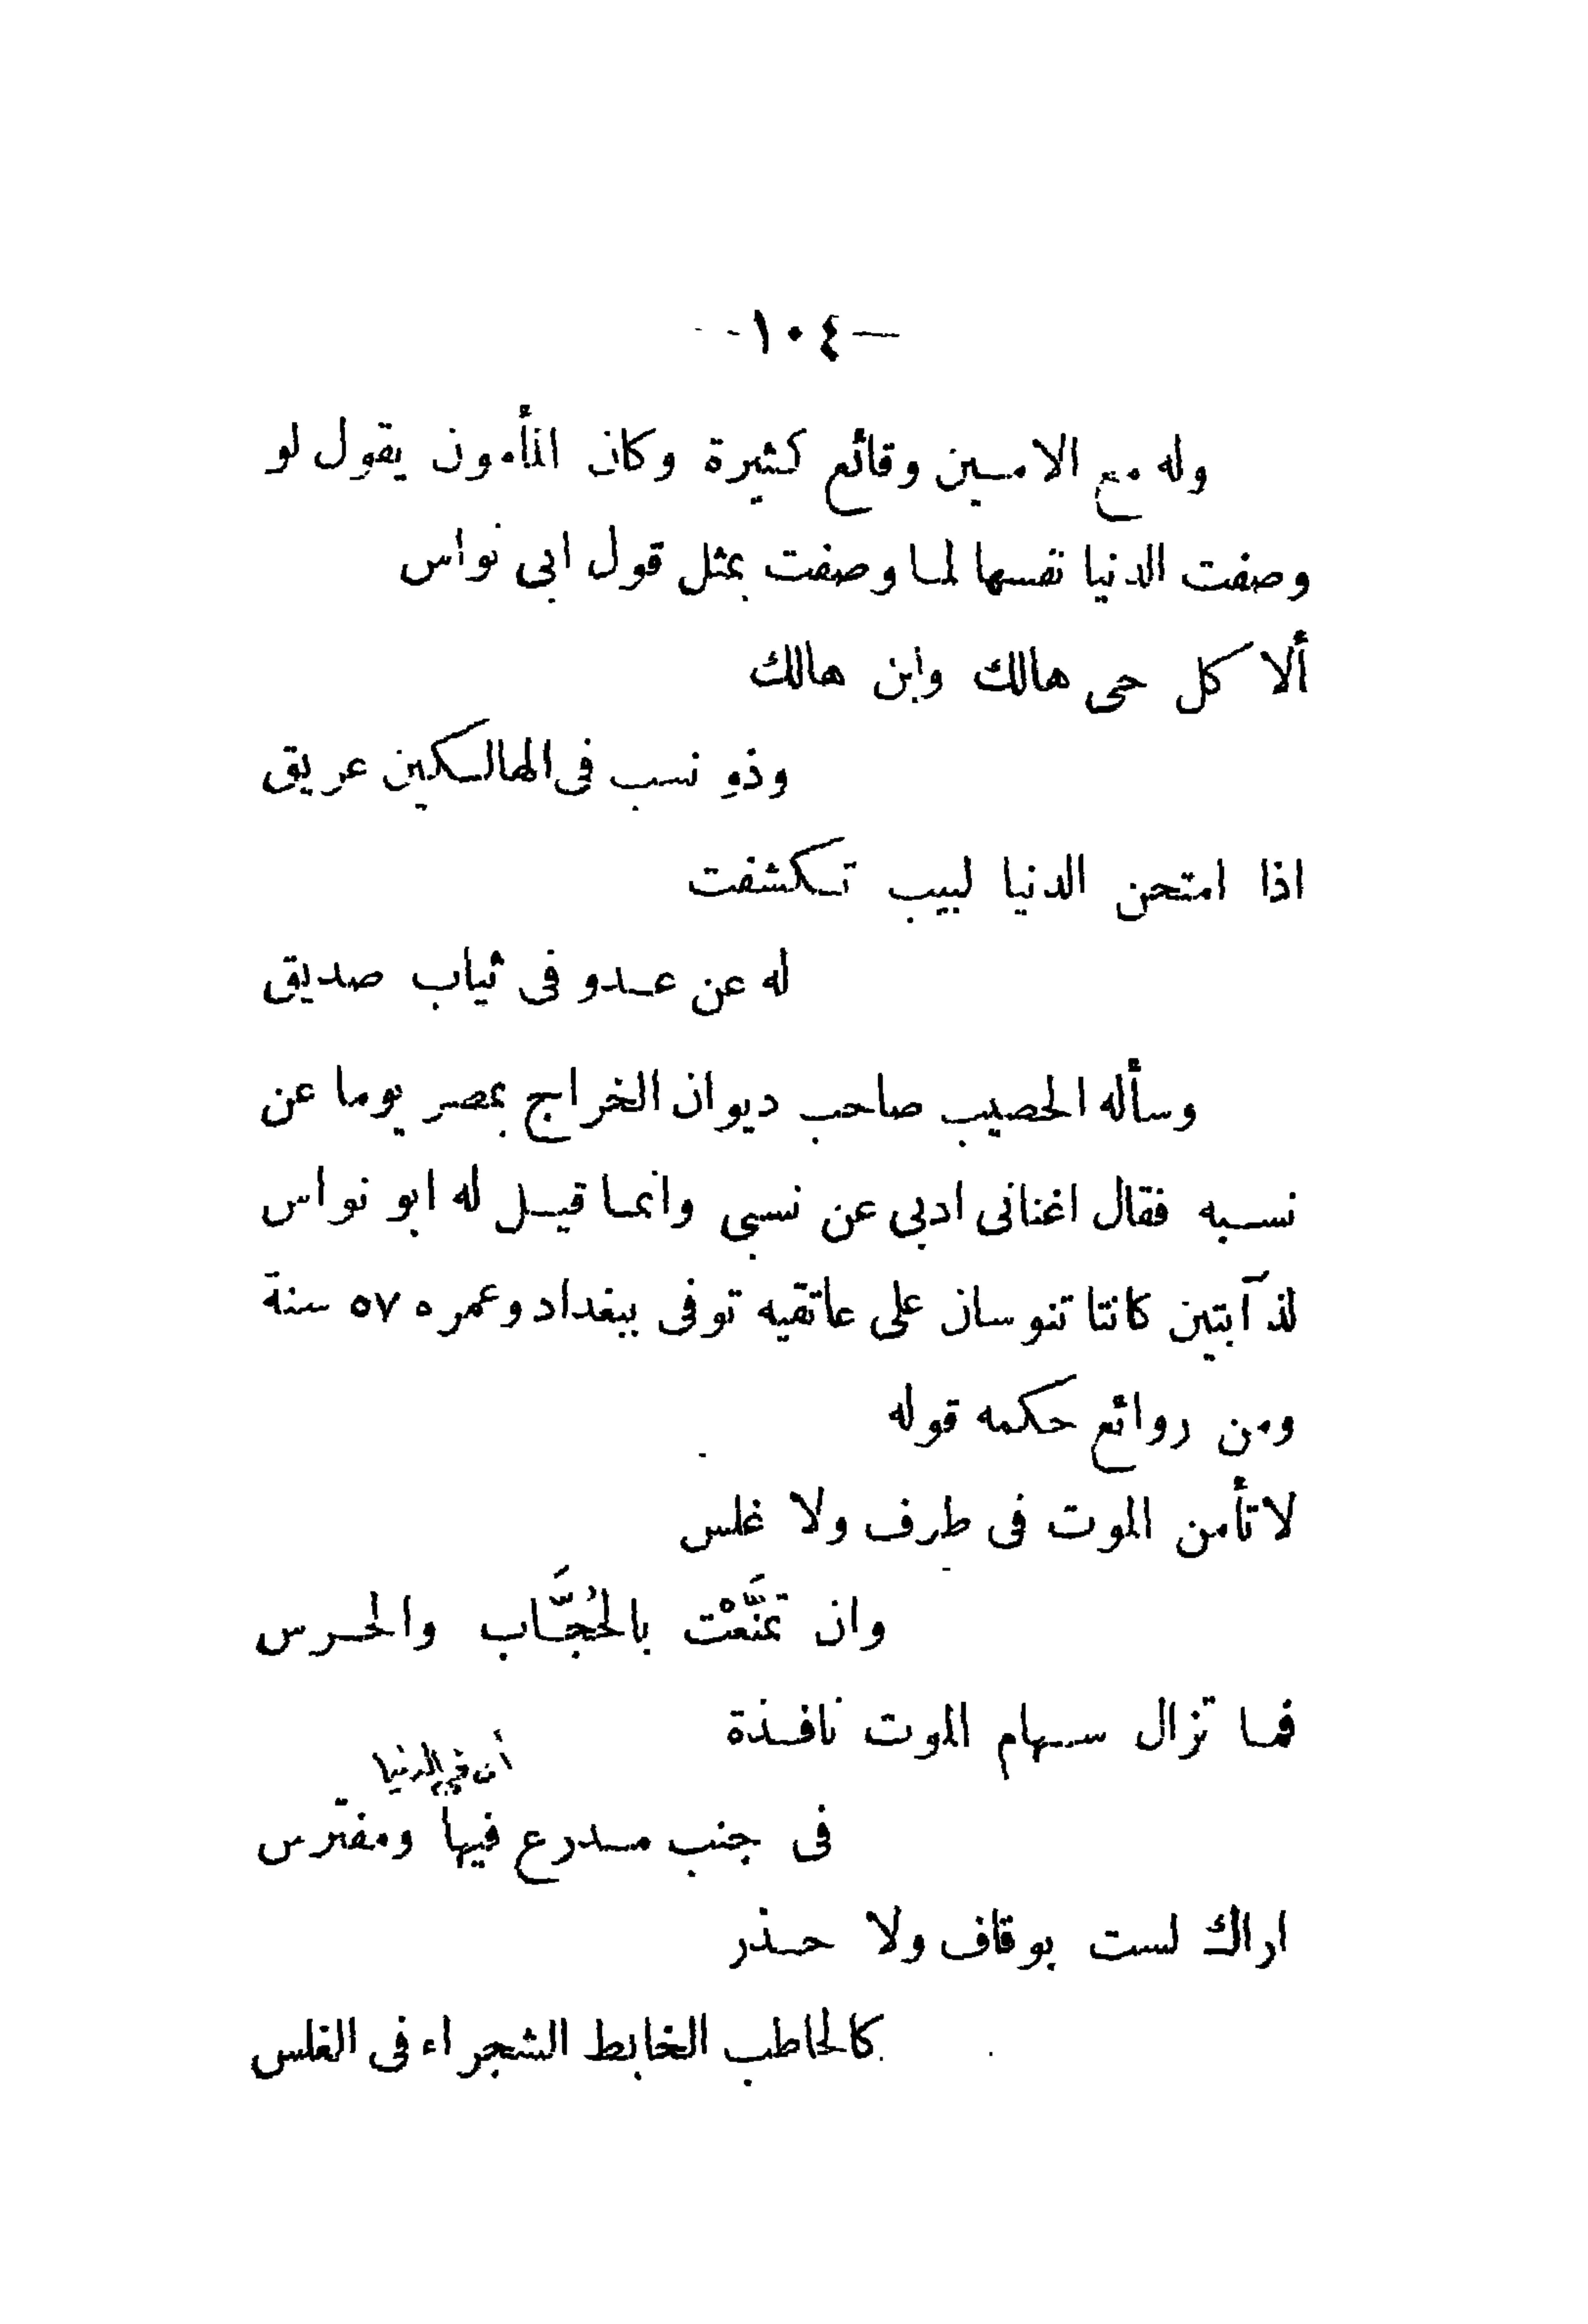 —١٠٤—
وله مع الامين وقائع كثيرة وكان المأمون يقول لو
وصفت الدنيا نفسها لما وصفت بمثل قول ابى نواس
ألا كل حى هالك وابن هالك
وذو نسب فى الهالكين عريق
اذا امتحن الدنيا لبيب تكشفت
له عن عدو فى ثياب صديق
وسأله الحصيب صاحب ديوان الخراج بمصر يوما عن
نسبه فقال اغنانى ادبى عن نسبى وانما قيل له ابو نواس
لذآبتين كانتا تنوسان على عاتقيه توفى ببغداد وعمره ٥٧ سنة
ومن روائع حكمه قوله
لا تأمن الموت فى طرف ولا غلس
وان تمنَّعْت بالحُجَّاب والحرس
فما تزال سهام الموت نافذة
أى فى الدنيا
فى جنب مدرع فيها ومفترس
اراك لست بوقاف ولا حذر
كالحاطب الخابط الشجراء فى الغلس